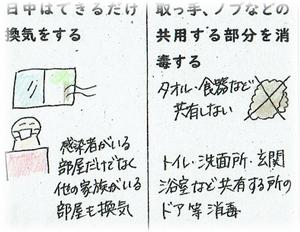 日中はできるだけ
換気をする
感染者がいる
部屋だけでなく
他の家族がいる
部屋も換気
取っ手、ノブなどの
共用する部分を消
毒する
タオル・食器など
共有しない
トイレ・洗面所・玄関
浴室など共有する所の
ドア等消毒